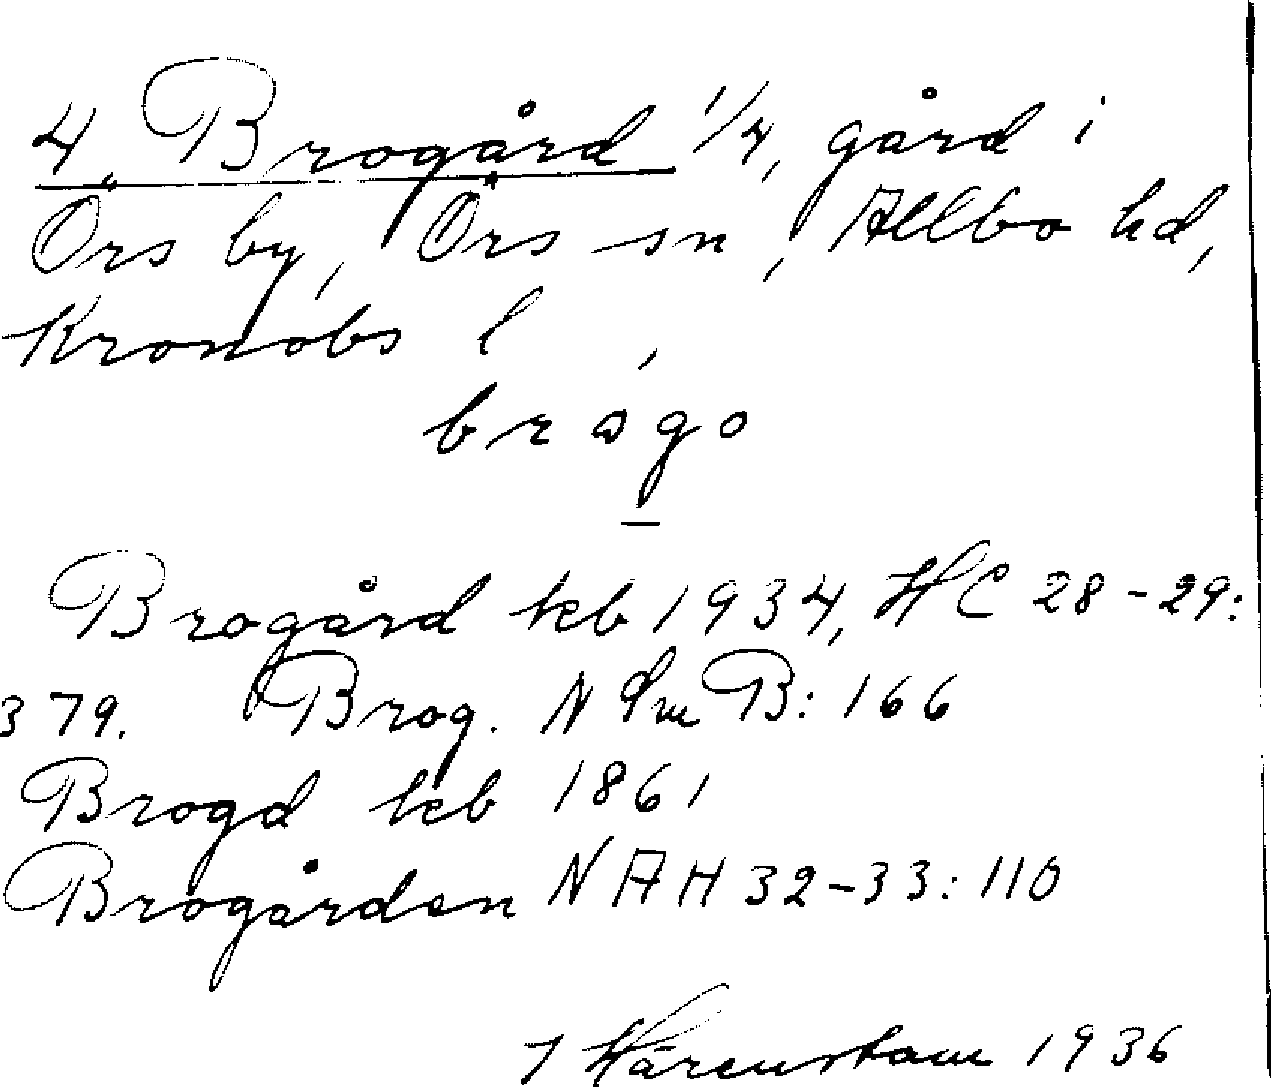 4, Brogård 1/4, gård i
Örs by, Örs sn, Allbo hd,
Kronobs l
brogo
Brogård kb 1934, HC 28-29:
379. Brog. N Sm B: 166
Brogd kb 1861
Brogården NAH 32-33: 110
Härenstam 1936